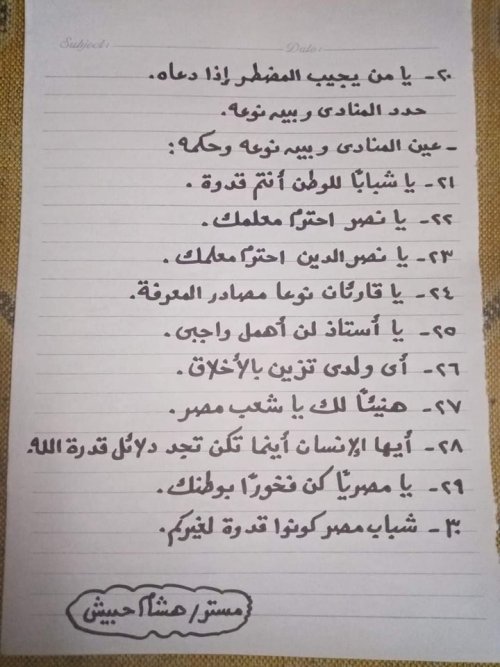 Subject: Date:
٢٠- يا من يجيب المضطر إذا دعاه.
حدد المنادى وبين نوعه.
- عين المنادى وبين نوعه وحكمه:
٢١- يا شبابًا للوطن أنتم قدوة.
٢٢- يا نصر احترم معلمك.
٢٣- يا نصر الدين احترم معلمك.
٢٤- يا قارئان نوعا مصادر المعرفة.
٢٥- يا أستاذ لن أهمل واجبى.
٢٦- أى ولدى تزين بالأخلاق.
٢٧- هنيئًا لك يا شعب مصر.
٢٨- أيها الإنسان أينما تكن تجد دلائل قدرة الله.
٢٩- يا مصريًا كن فخورًا بوطنك.
٣٠- شباب مصر كونوا قدوة لغيركم.
مستر/ هشام حبيش